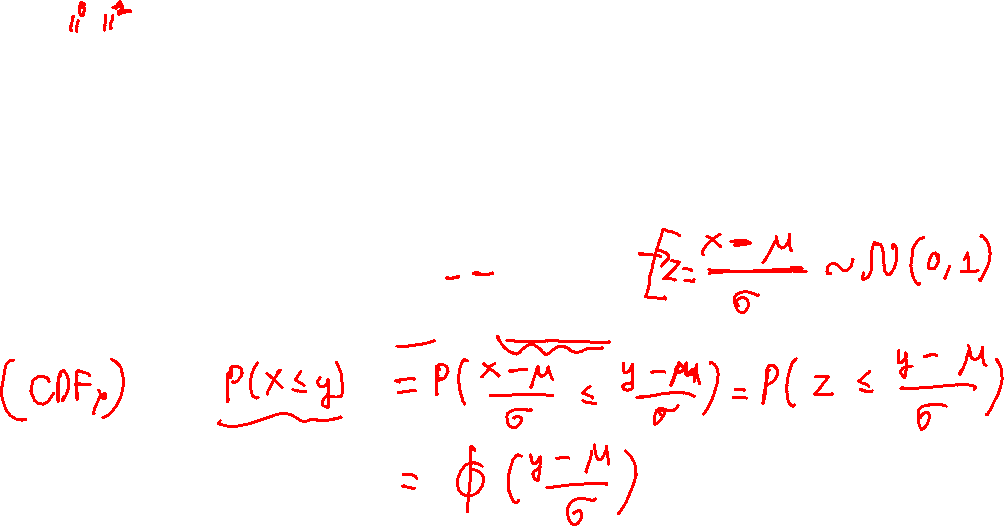 "0 "1
[z = (x − μ)/σ ~ N(0,1)
(CDF,) P(X ≤ y) = P((x − μ)/σ ≤ (y − μ)/σ) = P(z ≤ (y − μ)/σ)
= ϕ((y − μ)/σ)